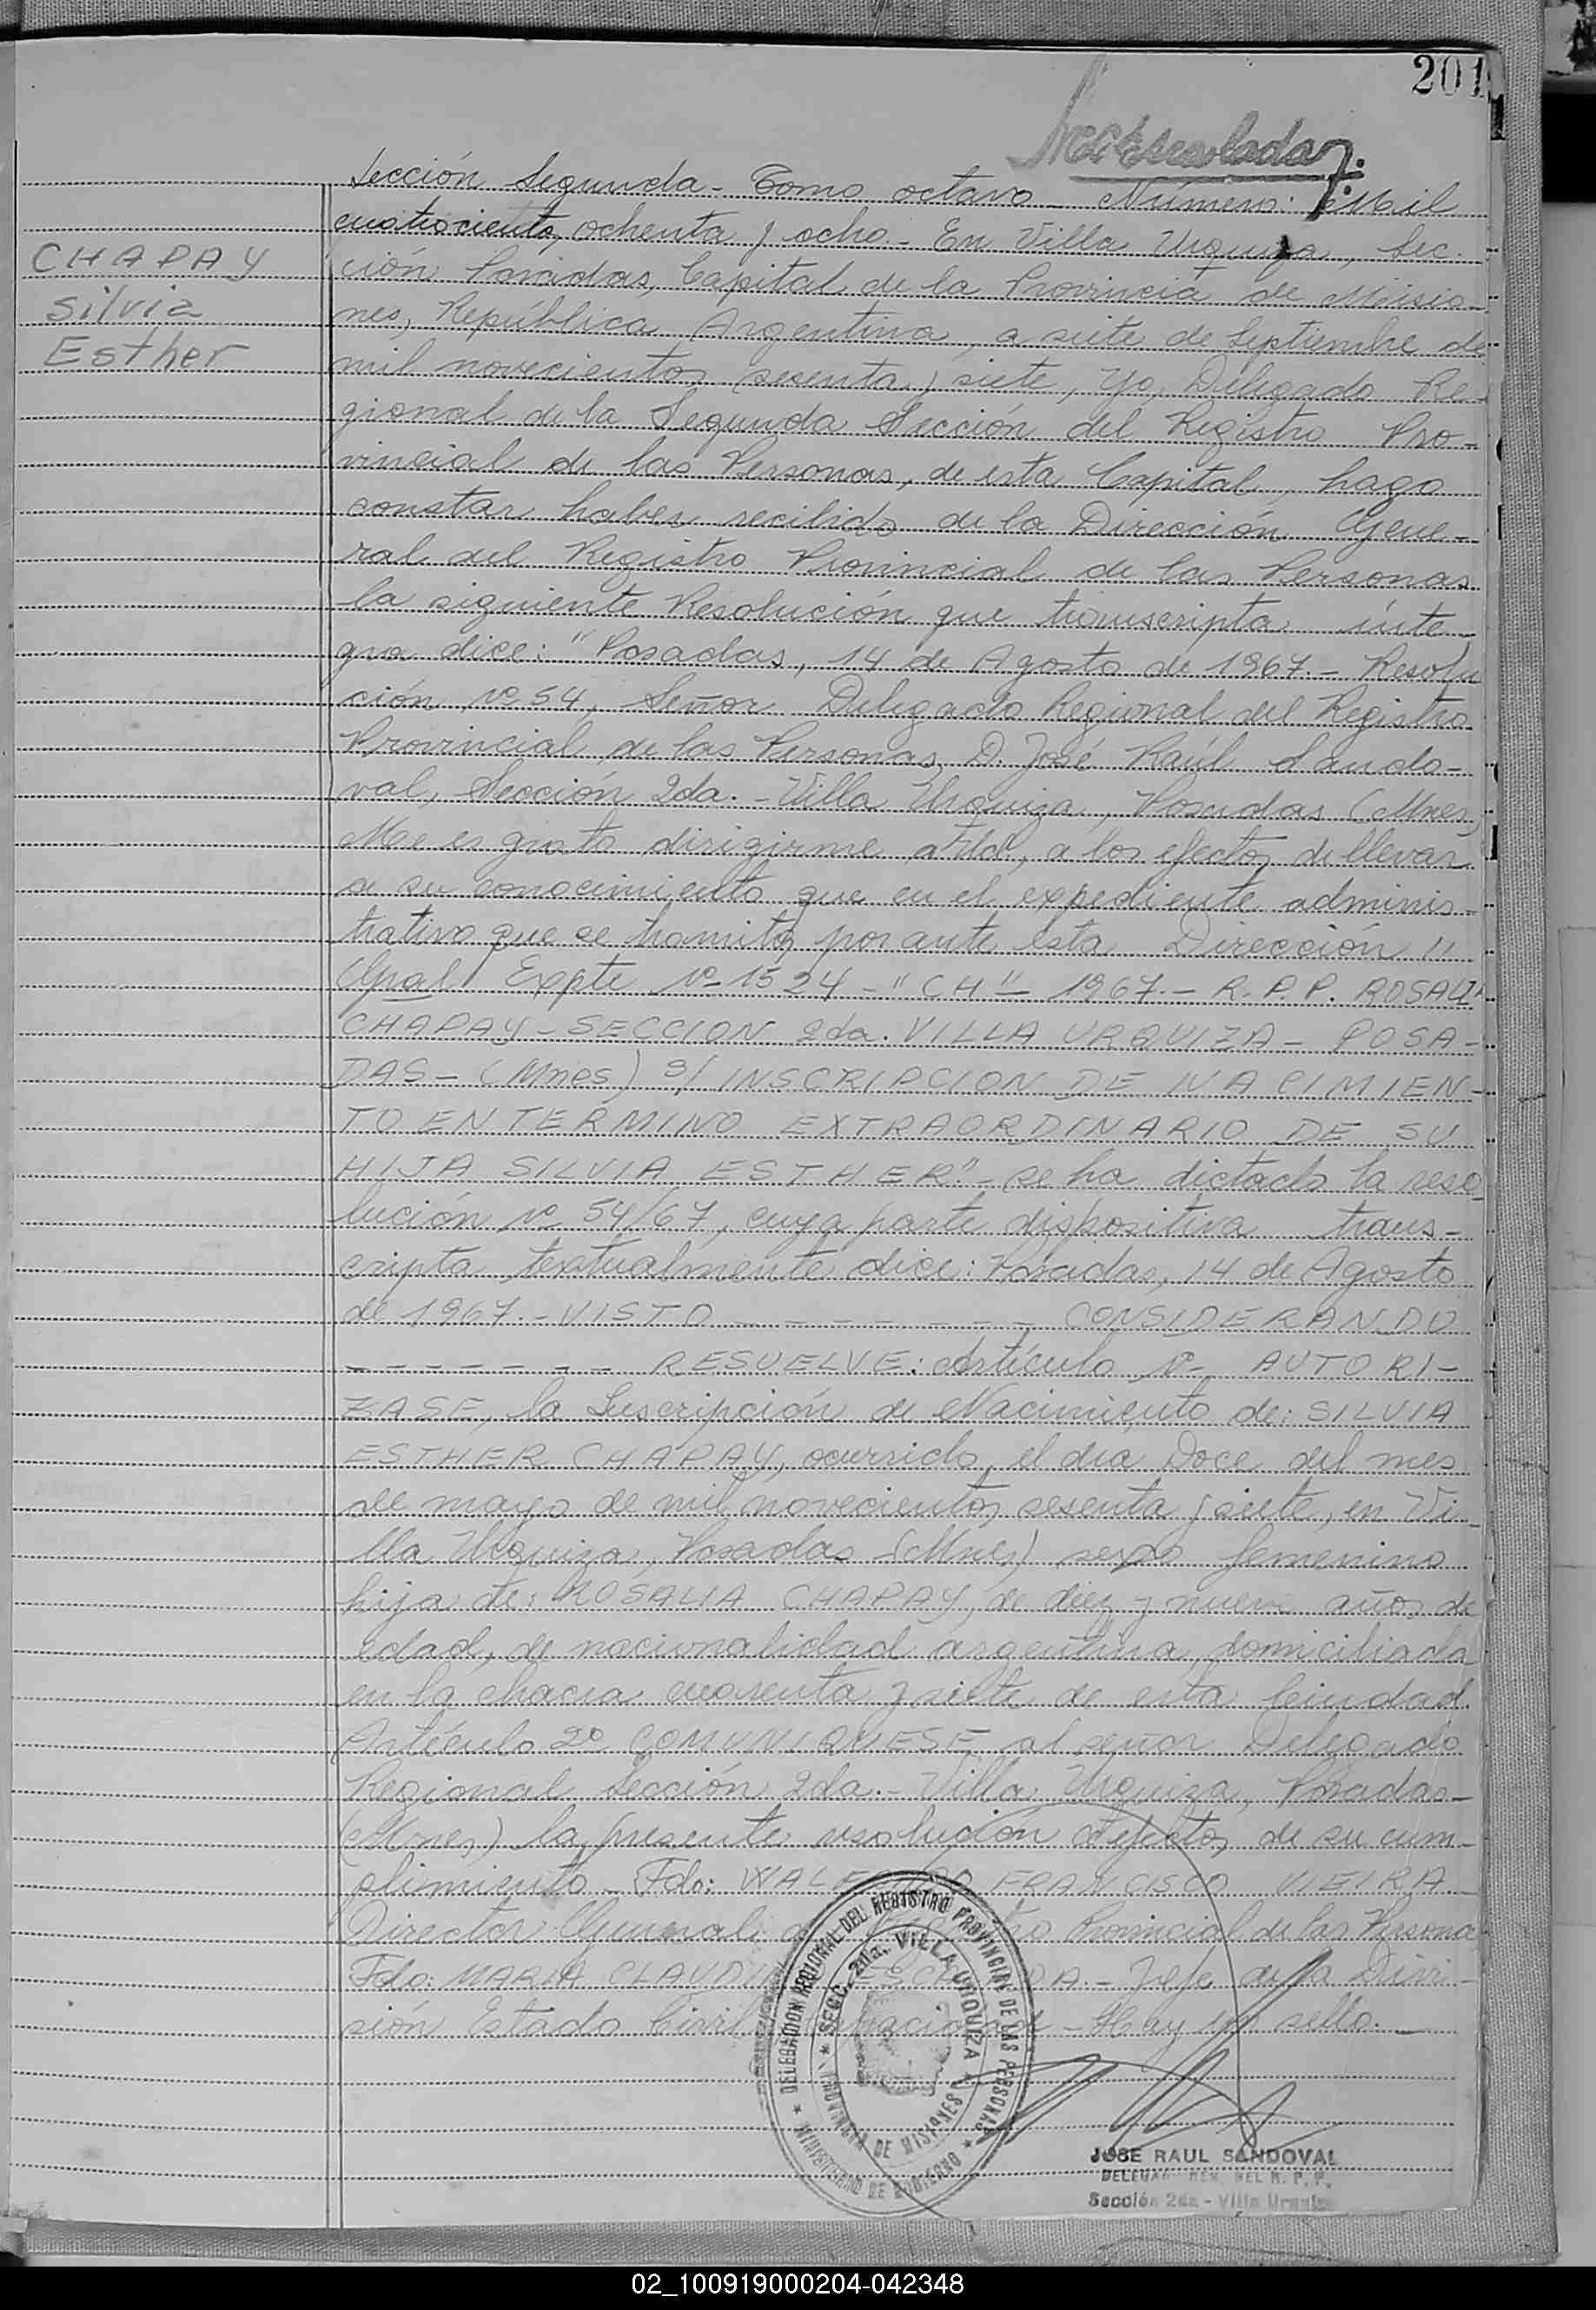 201
Sección Segunda - Tomo octavo - Número: Mil
cuatrocientos ochenta y ocho.- En Villa Urquiza, Sec-
CHAPAY
Silvia
Esther
ción Posadas, Capital de la Provincia de Misio-
nes, República Argentina, a siete de Septiembre de
mil novecientos sesenta y siete, Yo, Delegado Re-
gional de la Segunda Sección del Registro Pro-
vincial de las Personas, de esta Capital, hago
constar haber recibido de la Dirección Gene-
ral del Registro Provincial de las Personas
la siguiente Resolución que transcripta inte-
gra dice: "Posadas, 14 de Agosto de 1967.- Resolu
ción Nº 54, Señor Delegado Regional del Registro
Provincial de las Personas, D. José Raúl Sando-
val, Sección 2da.- Villa Urquiza, Posadas (Mnes)
Me es grato dirigirme a Ud, a los efectos de llevar
a su conocimiento que en el expediente adminis-
trativo que se tramitó por ante esta Dirección "
Gral Expte Nº 1524 - "CH" - 1967.- R.P.P. ROSALIA
CHAPAY - SECCION 2da. VILLA URQUIZA - POSA-
DAS - (Mnes) S/ INSCRIPCION DE NACIMIEN-
TO EN TERMINO EXTRAORDINARIO DE SU
HIJA SILVIA ESTHER".- se ha dictado la reso
lución Nº 54/67, cuya parte dispositiva trans-
cripta textualmente dice: Posadas, 14 de Agosto
de 1967.- VISTO - - - - - - - - CONSIDERANDO
- - - - - - - RESUELVE: Artículo 1º- AUTORI-
ZASE, la Inscripción de Nacimiento de: SILVIA
ESTHER CHAPAY, ocurrido el dia Doce del mes
de mayo de mil novecientos sesenta y siete, en Vi-
lla Urquiza, Posadas (Mnes) sexo femenino
hija de: ROSALIA CHAPAY, de diez y nueve años de
edad, de nacionalidad argentina, domiciliada
en la chacra cuarenta y siete de esta Ciudad.
Artículo 2º COMUNIQUESE al señor Delegado
Regional Sección 2da.- Villa Urquiza, Posadas-
(Mnes) la presente resolución a efectos de su cum-
plimiento - Fdo: WALFREDO FRANCISCO VIEIRA
Director General del Registro Provincial de las Persona
Fdo: MARIA CLAUDIA - Jefe de la Divi-
sión Estado Civil y - Hay un sello.-
DELEGACION REGIONAL DEL REGISTRO PROVINCIAL DE LAS PERSONAS
SECC. 2da. VILLA URQUIZA
PROVINCIA DE MISIONES
MINISTERIO DE GOBIERNO
JOSE RAUL SANDOVAL
DELEGADO REG. DEL R. P. P.
Sección 2da - Villa Urquiza
02_100919000204-042348